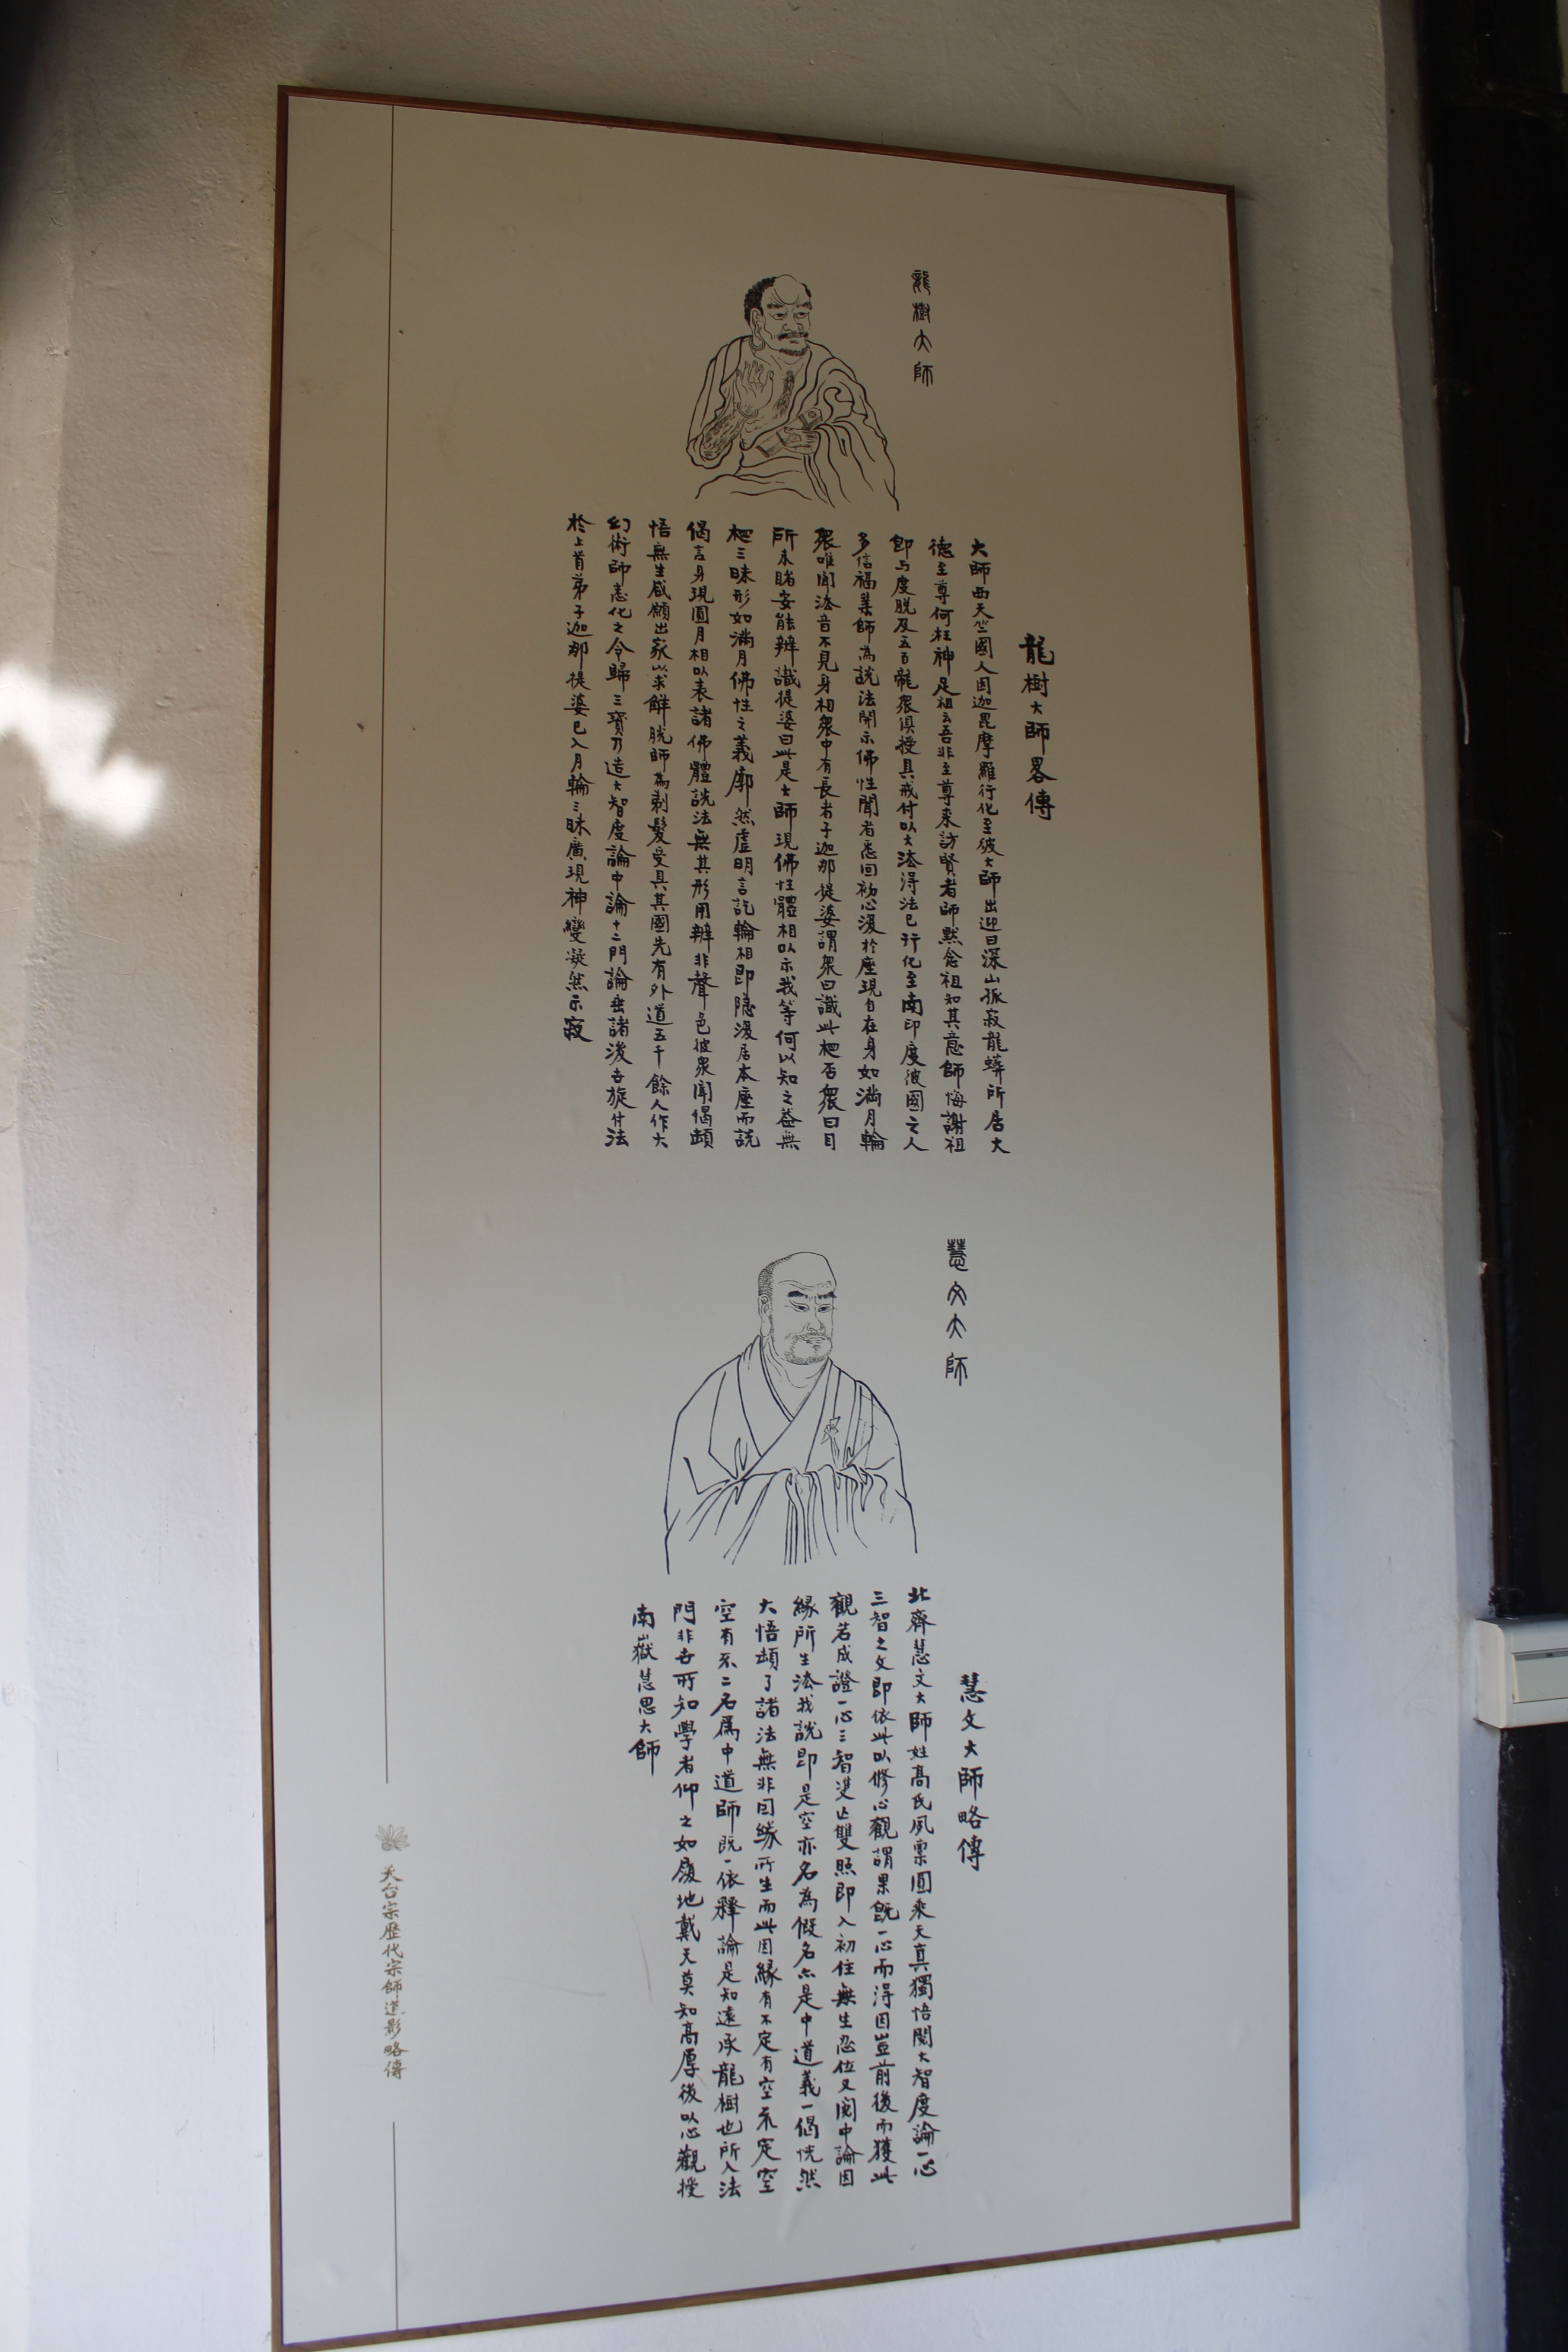 龍樹大師
龍樹大師畧傳
大師西天竺國人因迦毘摩羅行化至彼大師出迎曰深山孤寂龍蟒所居大
德至尊何枉神足祖云吾非至尊来訪賢者師默念祖知其意師悔謝祖
即与度脱及五百龍衆俱授具戒付以大法得法已行化至南印度彼國之人
多信福業師為説法開示佛性聞者悉回初心復於座現自在身如滿月輪
衆唯聞法音不見身相衆中有長者子迦那提婆謂衆曰識此相否衆曰目
所未睹安能辨識提婆曰此是大師現佛性體相以示我等何以知之葢無
相三昧形如滿月佛性之義廓然虚明言訖輪相即隱復居本座而説
偈言身現圓月相以表諸佛體説法無其形用辨非聲色彼衆聞偈頓
悟無生咸願出家以求解脱師為剃髮受具其國先有外道五千餘人作大
幻術師悉化之令歸三寶乃造大智度論中論十二門論垂諸後世旋付法
於上首弟子迦那提婆已入月輪三昧廣現神變凝然示寂
慧文大師
慧文大師略傳
北齊慧文大師姓髙氏夙稟圓乘天真獨悟閱大智度論一心
三智之文即依此以修心觀謂果既一心而得因豈前後而獲此
觀若成證一心三智雙亡雙照即入初住無生忍位又閱中論因
緣所生法我説即是空亦名為假名亦是中道義一偈恍然
大悟頓了諸法無非因緣所生而此因緣有不定有空不定空
空有不二名爲中道師既一依釋論是知遠承龍樹也所入法
門非世所知學者仰之如履地戴天莫知髙厚後以心觀授
南嶽慧思大師
天台宗歷代宗師道影略傳